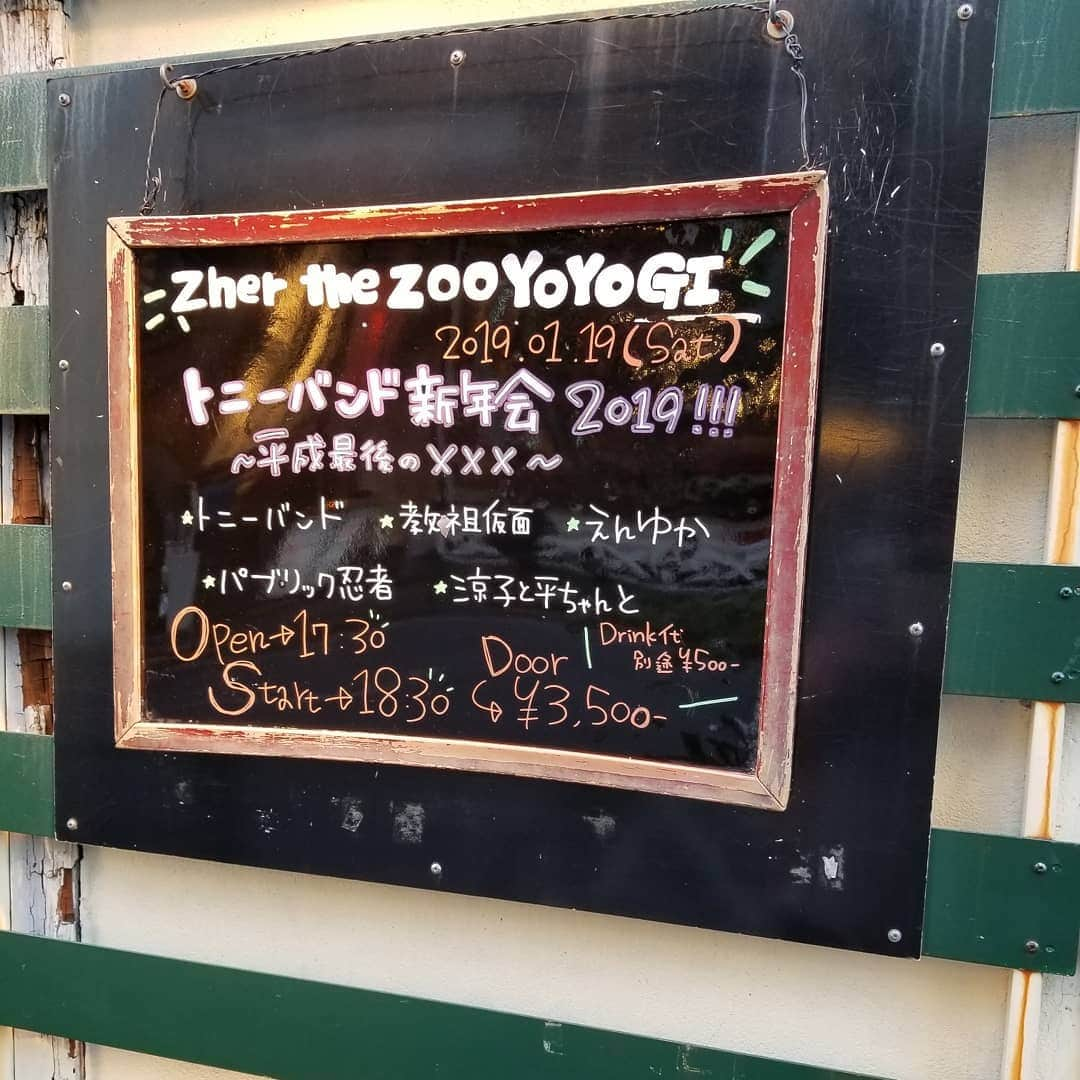 Zher the ZOO YOYOGI
2019.01.19(Sat)
トニーバンド新年会 2019!!!
~平成最後のXXX~
★トニーバンド ★教祖仮面 ★えんゆか
★パブリック忍者 ★涼子と平ちゃんと
Open→17:30
Start→18:30
Door
↳¥3,500-
Drink代
別途¥500-